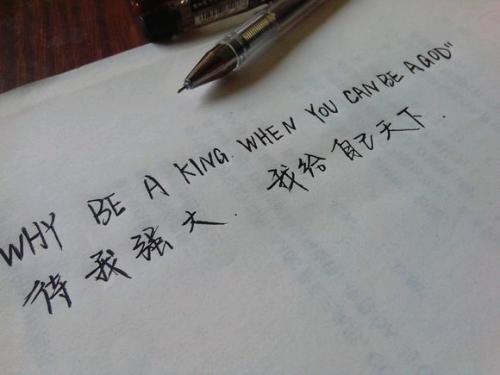 WHY BE A KING. WHEN YOU CAN BE A GOD"
待我强大. 我给自己天下.